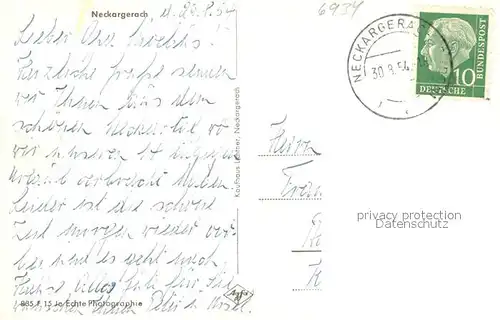 Neckargerach, d. 29.8.54
Lieber
Herzliche Grüße senden
wir Ihnen aus dem
schönen Neckartal wo
wir unseren 14 tägigen
Urlaub verbracht haben
Leider ist die schöne
Zeit morgen wieder vor-
bei und es geht nach
Hause. Alles Gute für Sie
wünschen Ihnen
885 F 15 Je Echte Photographie
Kaufhaus Neckargerach
Agfa
6934
NECKARGERACH
30.8.54
10
DEUTSCHE
BUNDESPOST
Herrn
Frau
privacy protection
Datenschutz